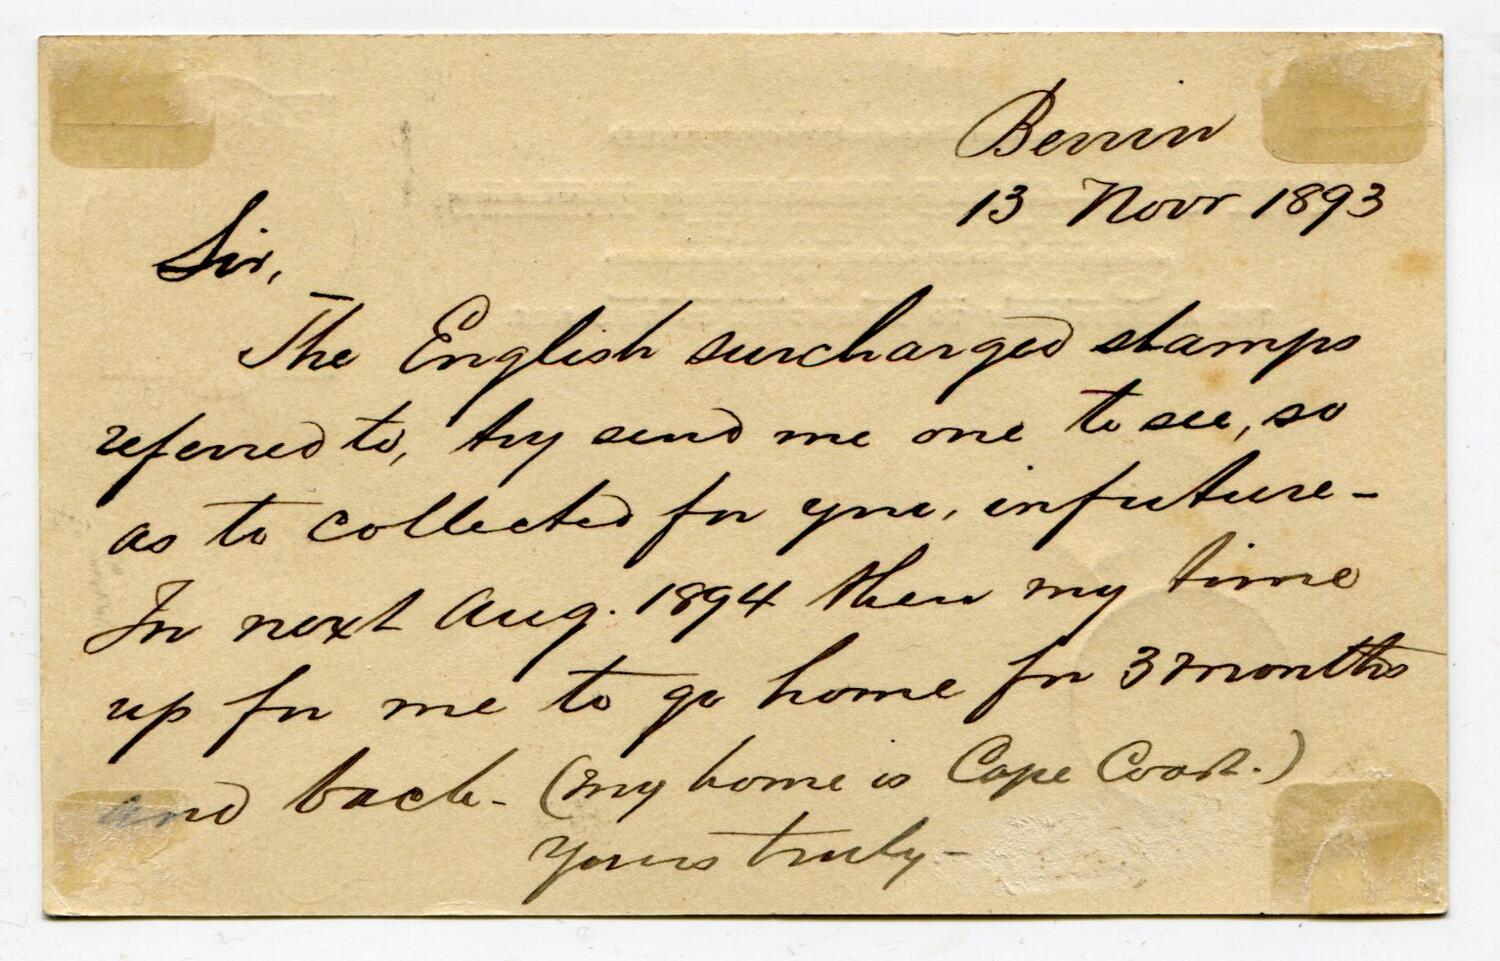 Benin
13 Novr 1893
Sir,
The English surcharged stamps
referred to, try send me one to see, so
as to collected for you, in future -
In next Aug. 1894 then my time
up for me to go home for 3 months
and back - (my home is Cape Coast.)
Yours truly -